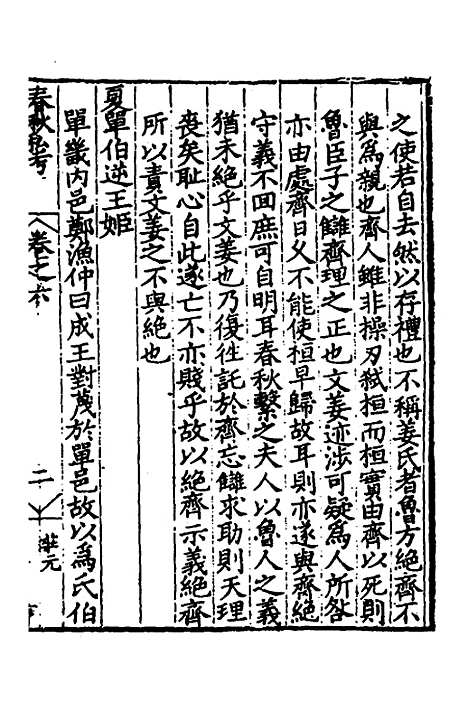 之使若自去然以存禮也不稱姜氏者魯方絕齊不
與為親也齊人雖非操刃弒桓而桓實由齊以死則
魯臣子之讎齊理之正也文姜迹涉可疑為人所咎
亦由處齊日久不能使桓早歸故耳則亦遂與齊絕
守義不回庶可自明耳春秋繫之夫人以魯人之義
猶未絕乎文姜也乃復往託於齊忘讎求助則天理
喪矣恥心自此遂亡不亦賤乎故以絕齊示義絕齊
所以責文姜之不與絕也
夏單伯逆王姬
單畿內邑鄭漁仲曰成王封蔑於單邑故以為氏伯
春秋
卷之六
二